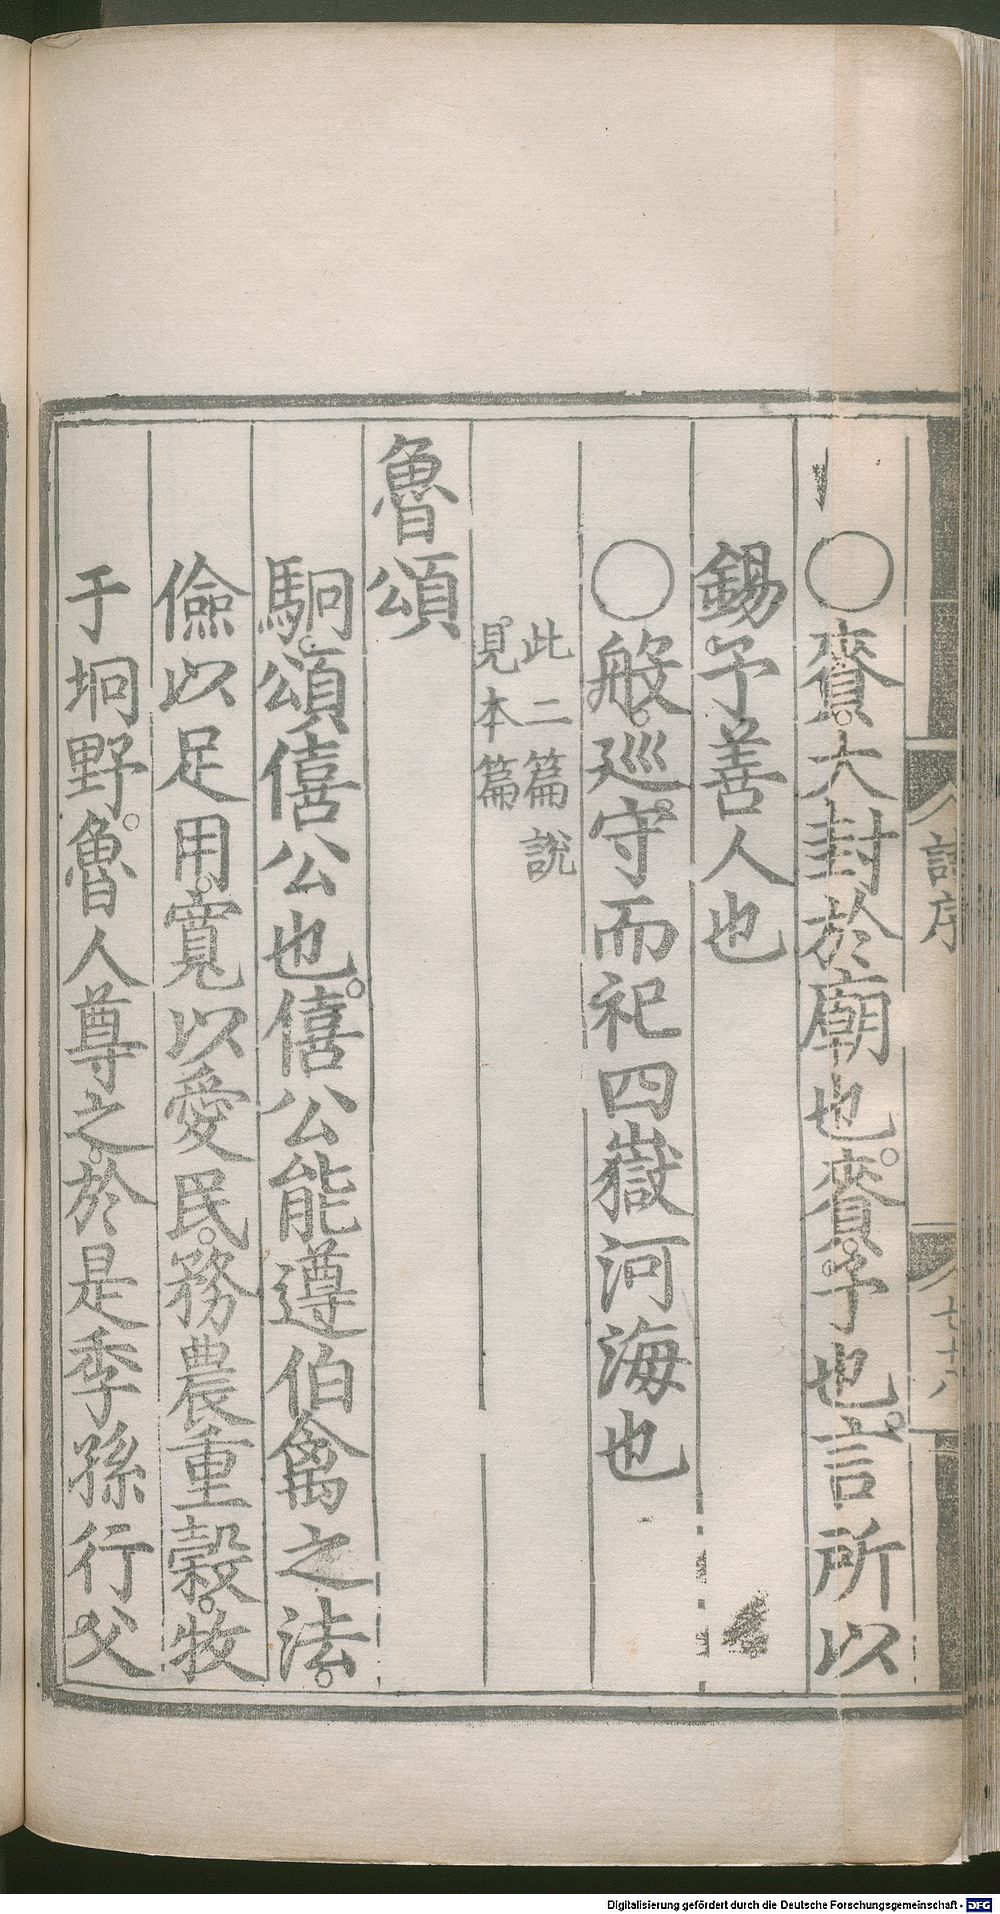 詩序
七十八
○賚。大封於廟也。賚。予也。言所以
錫予善人也
○般。巡守。而祀四嶽河海也
此二篇說
見本篇
魯頌
駉。頌僖公也。僖公能遵伯禽之法。
儉以足用。寬以愛民。務農重穀。牧
于坰野。魯人尊之。於是季孫行父
Digitalisierung gefördert durch die Deutsche Forschungsgemeinschaft - DFG